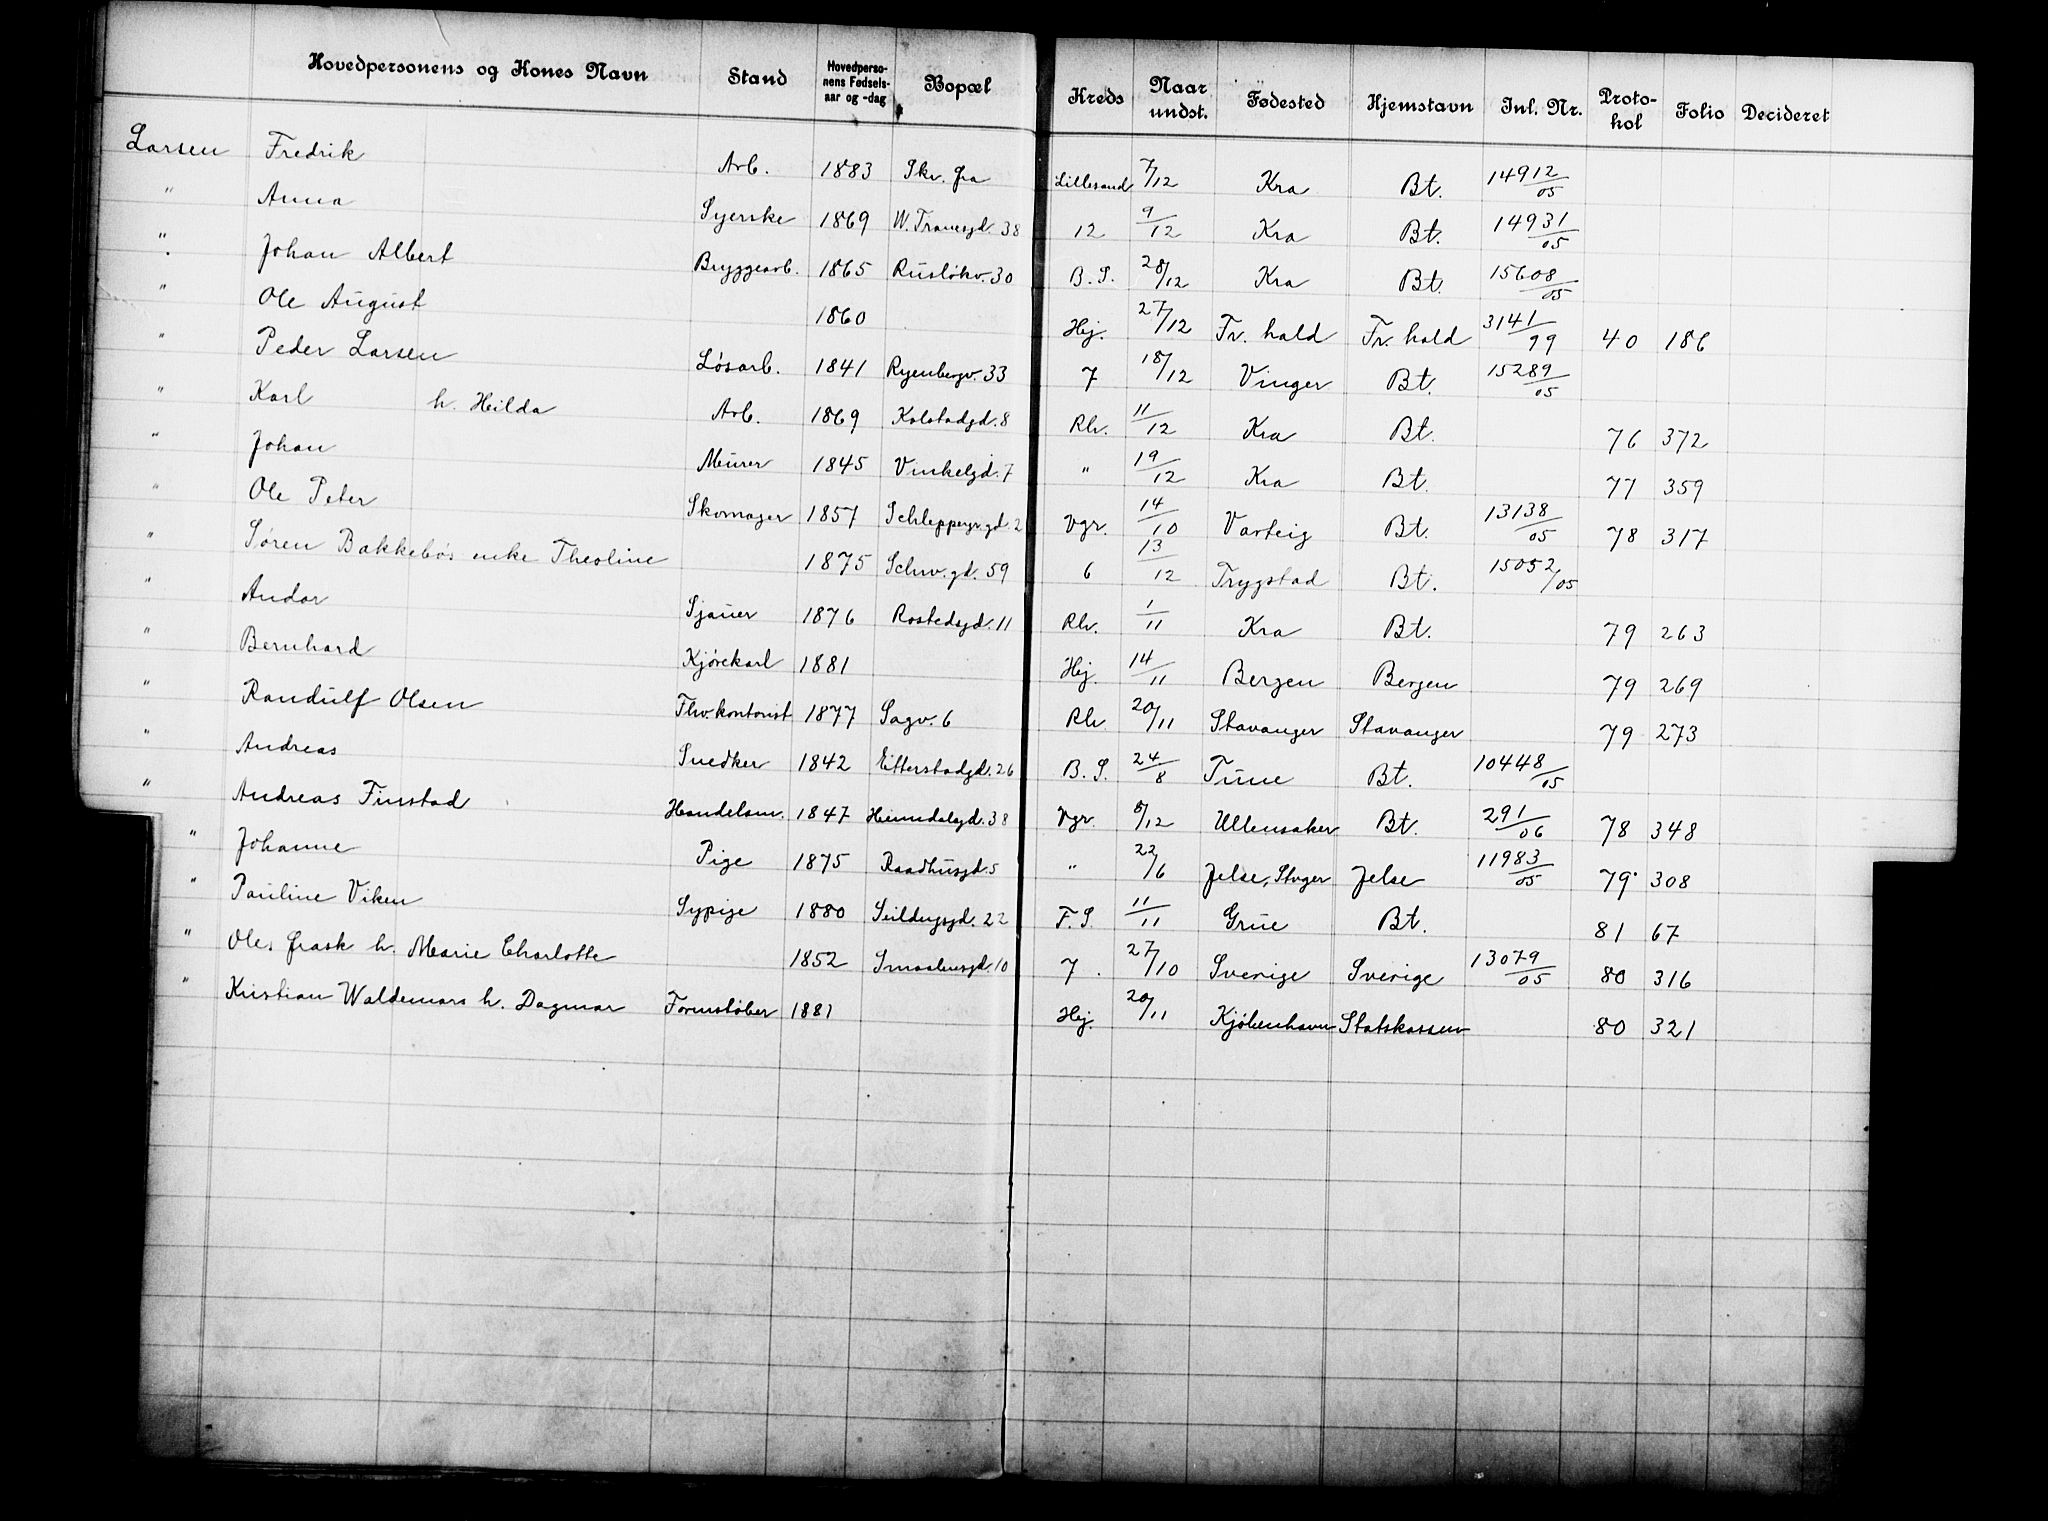 Hovedpersonens og Kones Navn Stand Hovedperso-nens Fødsels-aar og -dag Bopæl Kreds Naar undst. Fødested Hjemstavn Inl. Nr. Proto-kol Folio Decideret
Larsen Fredrik Arb. 1883 Skr. fra Lillesand 7/12 Kra Bt. 14912/05
" Anna Syerske 1869 W. Tranesgd. 38 12 9/12 Kra Bt. 14931/05
" Johan Albert Bryggearb. 1865 Rusløkv. 30 B. S. 28/12 Kra Bt. 15608/05
" Ole August 1860 Hej. 27/12 Fr. hald Fr. hald 3141/99 40 186
" Peder Larsen Løsarb. 1841 Ryenbergv. 33 7 18/12 Vinger Bt. 15289/05
" Karl h. Hilda Arb. 1869 Kolstadgd. 8 Rh. 11/12 Kra Bt. 76 372
" Johan Murer 1845 Vinkelgd. 7 " 19/12 Kra Bt. 77 359
" Ole Peter Skomager 1857 Schleppegr.gd. 2 Vgr. 14/10 Varteig Bt. 13138/05 78 317
" Søren Bakkebøs enke Theoline 1875 Schw. gd. 59 6 13/12 Trygstad Bt. 15052/05
" Andor Sjauer 1876 Rostedsgd. 11 Rh. 1/11 Kra Bt. 79 263
" Bernhard Kjørekarl 1881 Hej. 14/11 Bergen Bergen 79 269
" Randulf Olsen Fhv. kontorist 1877 Sagv. 6 Rh 20/11 Stavanger Stavanger 79 273
" Andreas Snedker 1842 Eitterstadgd. 26 B. S. 24/8 Tune Bt. 10448/05
" Andreas Finstad Handelsm. 1847 Heimdalsgd. 38 Vgr. 8/12 Ullensaker Bt. 291/06 78 348
" Johanne Pige 1875 Raadhusgd. 5 " 22/6 Jelse, Stvger Jelse 11983/05 79 308
" Pauline Viken Sypige 1880 Seildugsgd. 22 F. S. 11/11 Grue Bt. 81 67
" Oles frask h. Marie Charlotte 1852 Smaalensgd. 10 7 27/10 Sverige Sverige 13079/05 80 316
" Kristian Waldemars h. Dagmar Formstøber 1881 Hej. 20/11 Kjøbenhavn Statskassen 80 321